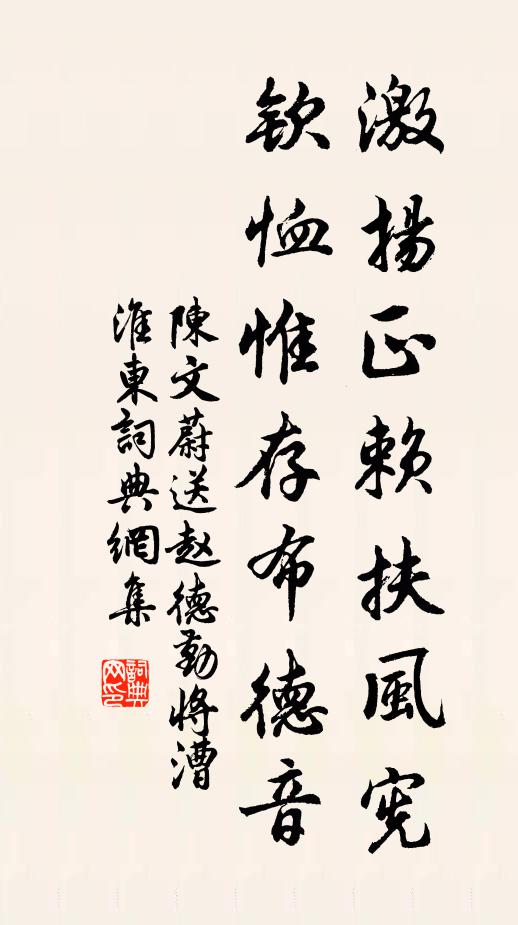 激揚正賴扶風憲
欽恤惟存布德音
陳文蔚送赵德勤将漕
淮東詞典網集
詞典网印